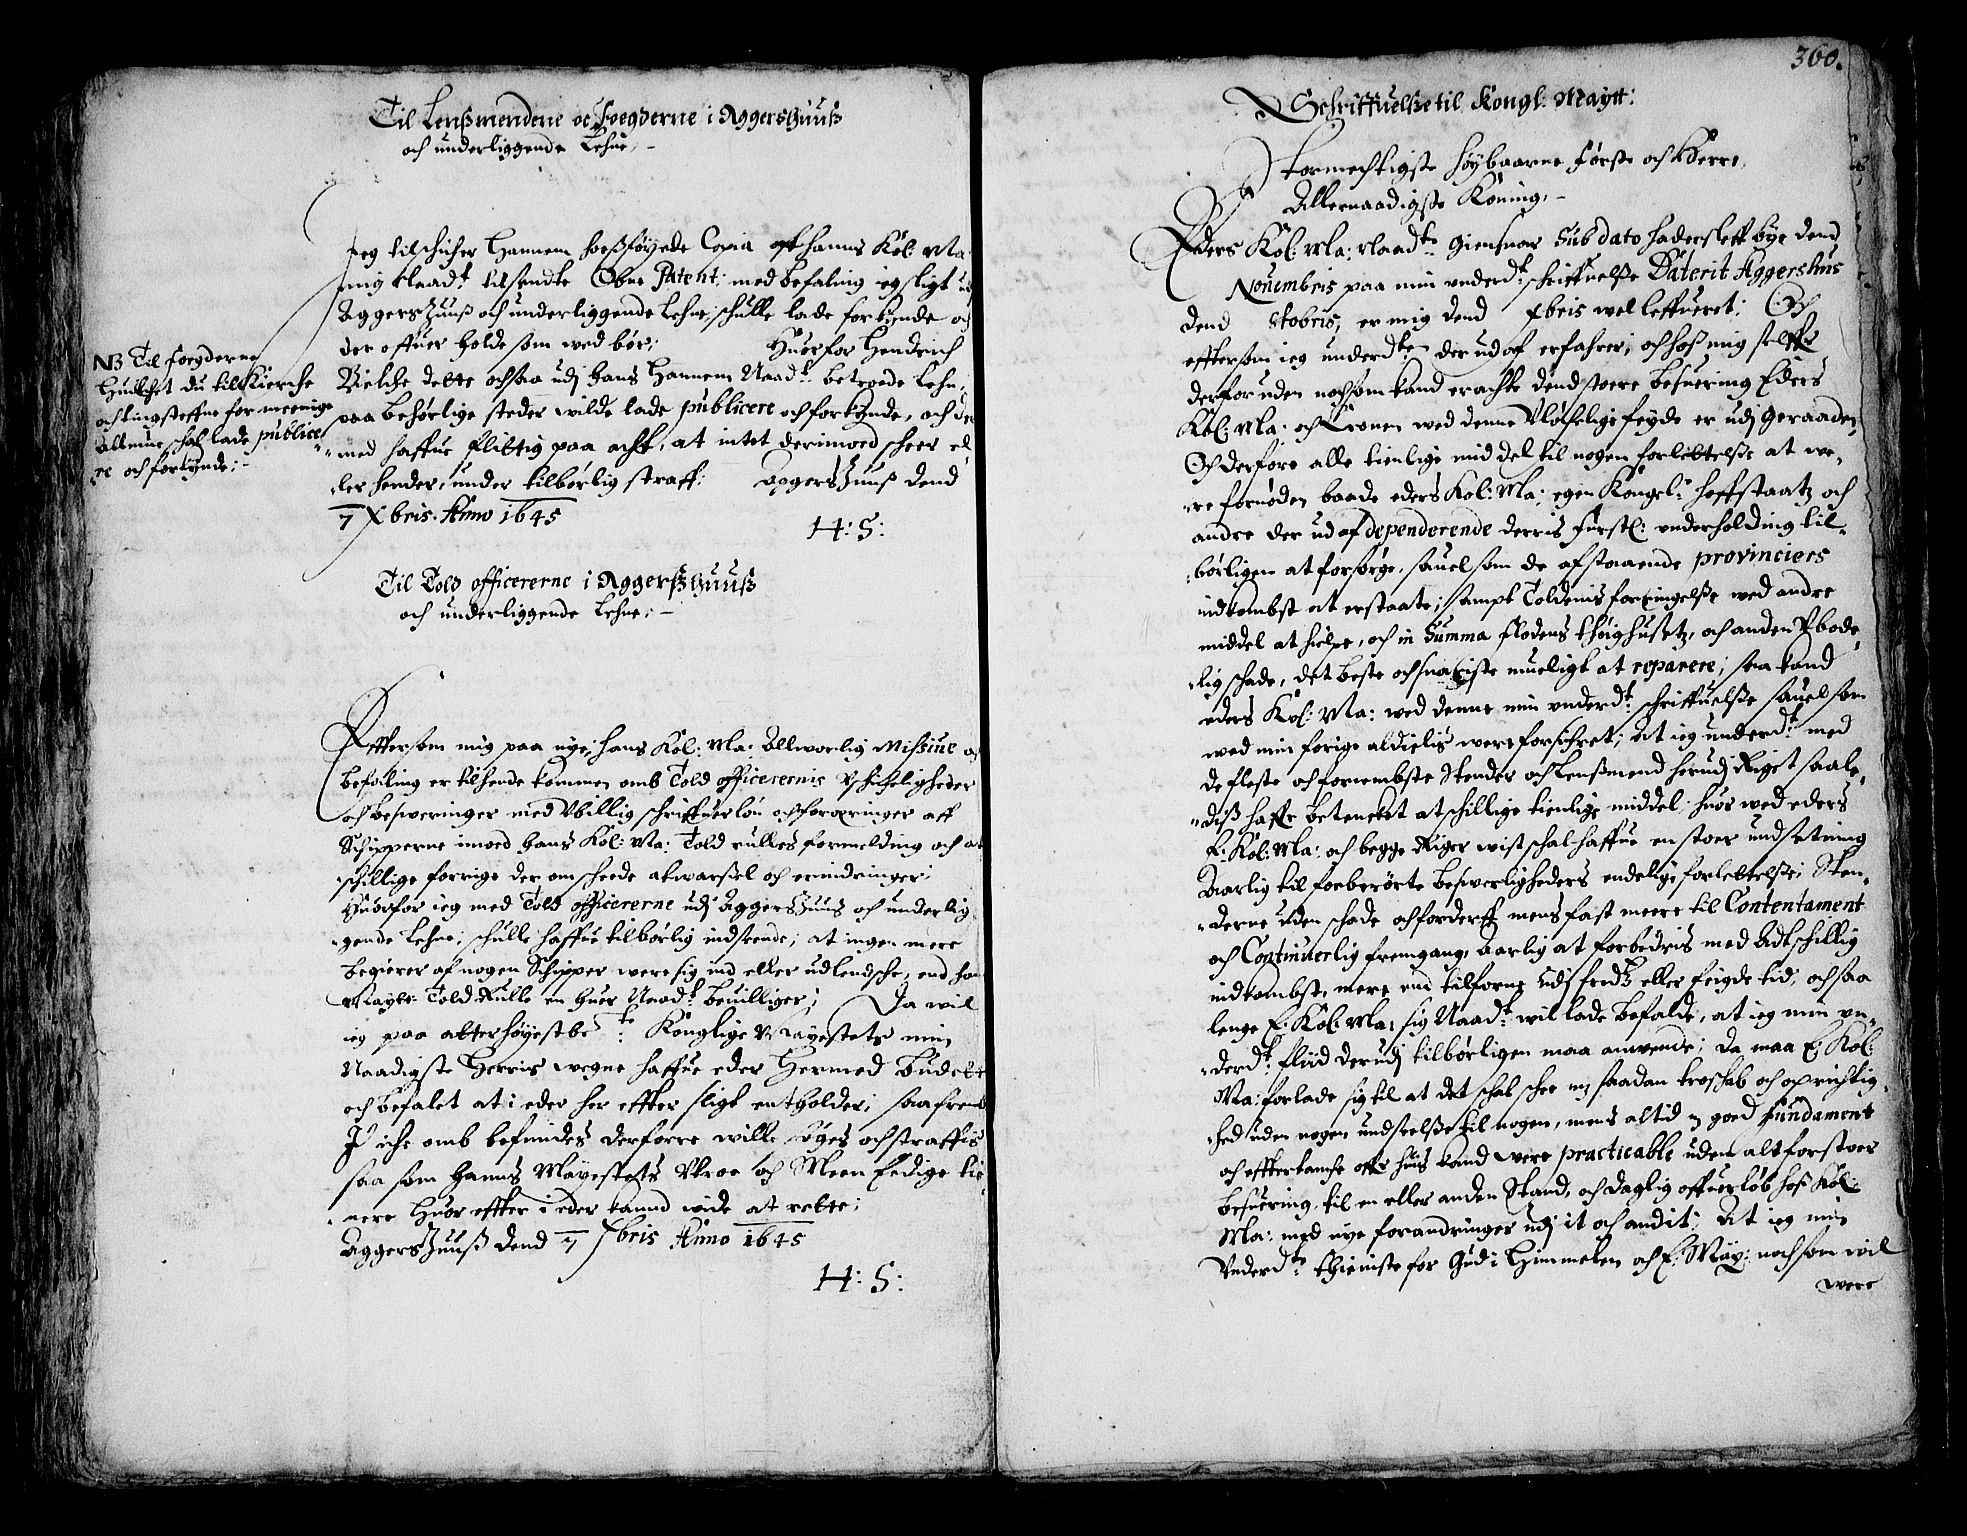 Til Lenßmendene oc Foegderne i Aggerszhuuß
och underliggende Lehne;
Jeg tilschicher Hannem hoeßføyede Copia aff hanns Kol: Ma:
mig Naadt. tilsendte Obne Patent; med befaling ieg sligt ud
Aggerszhuuß och underliggende Lehne; schulle lade forkynde oc
der offuer holde som wed bør; Huorfor Hendrich
Bielche dette ochsaa udj hans Hannem Naadt. betroede Lehn,
paa behørlige steder wilde lade publicere och forkynde, och der
med haffue flittig paa acht, at intet derimoed scheer el,,
,,ler hender, under tilbørlig straff: Aggerszhuuß dend
7 Xbris. Anno 1645
H: S:
NB Til foegderne
Huilchet du till Kierche
och tingsteffne for meenige
Allmue schal lade publice
re och forkynde;
Til Told officererne i Aggerßzhuuß
och underliggende Lehne;
Efftersom mig paa nye; hans Kol: Ma: Allworlig Missiue oc
befaling er tilhende kommen omb Told officerernis Vschicheligheder
och besweringer med Vbillig schriffuerløn och forexringer aff
Schipperne imoed hans Kol: Ma: Told rulles formelding och at
schillige forrige der om scheede atwarßel och erindringer;
Huorfor ieg med Told officererne udj Aggerszhuus och underlig
gende Lehne; schulle haffue tilbørlig indseende; at ingen mere
begierer af nogen Schipper were sig ind eller udlendsche, end hans
Mayts: Told Rulle en huer Naadt. beuilliger; Da wil
ieg paa alterhøyestbete: Konglige Mayestets min
Naadigste Herris wegne haffue eder Hermed Budet
och befalet at i eder her effter sligt entholder; saafremt
I iche omb befindes derforre wille søges och straffis
saa som Hanns Mayestets Vtroe och Meen Eedige tie,,
,,nere Huor effter i eder kannd wide at rette;
Aggerszhuuß dend 7 Xbris Anno 1645
H: S:
360.
Schriffuelße til Kongl: Maytt:
Stormechtigste Høybaarne Første och Herre,
Allernaadigste Koning,
Eders Kol: Ma: Naadte. giensuar Sub dato Haderßleff bye dend
Nouembris paa min underdt. schriffuelße Daterit Aggershus
dend 8tobris, er mig dend Xbris wel leffueret; Och
efftersom ieg underdten der ud af erfahrer, och hoß mig selffe
derforuden nochsom kand erachte dend stoere besuering Eders
Kol: Ma: och Kronen wed denne Vløchelige feyde er udj geraaden,
Och derfore alle tienlige middel til nogen forlettelße at we,,
,,re fornøden baade eders Kol: Ma: egen Kongel: hoffstaatz och
andre der ud af dependerende derris Fürstl: underholding til,,
,,børligen at forsørge, sauel som de afstaaende provinciers
indkombst at erstaate; sampt Toldenis forringelße wed andre
middel at hielpe, och in Summa flodens thøighusetz, och anden Vbode,,
,,lig schade, det beste och snariste mueligt at reparere; saa kand
eders Kol: Ma: wed denne min underdt. schriffuelße sauel som
wed min forige aldielis were forsichret; At ieg underdt. med
de fleste och fornembste Stender och Lenßmend herudj Riget saale,,
,,diß haffr betencket atschillige tienlige middel; huor wed eders
E. Kol: Ma: och begge Riger wist schal haffue en stoer undsetning
Aarlig til foeberørte beswerligheders endelige forlettelße; Sten,,
,,derne uden schade och forderff mens fast meere til Contentament
och Continuerlig fremgang, Aarlig at forbedris med Adtschillig
indkombst, mere end tilforne udj freds eller feigde tid; och saa
lenge E. Kol: Ma: sig Naadt. wil lade befalde, at ieg min un,,
,,derdt. fliid derudj tilbørligen maa anwende; Da maa E. Kol:
Ma: forlade sig til at det schal schee mj saadan troschab och oprichtig,,
,,hed uden nogen undseelße til nogen, mens altid mj goed fundament
och effterkomst offr huis kand were practicable uden alt for stoer
besuering, til en eller anden Stand, och daglig offuerløb hoß Kol:
Ma: med nye forandringer udj it och andit; At ieg min
Underdte. thieniste for Gud i Himmelen och E. May: nochsom wil
were